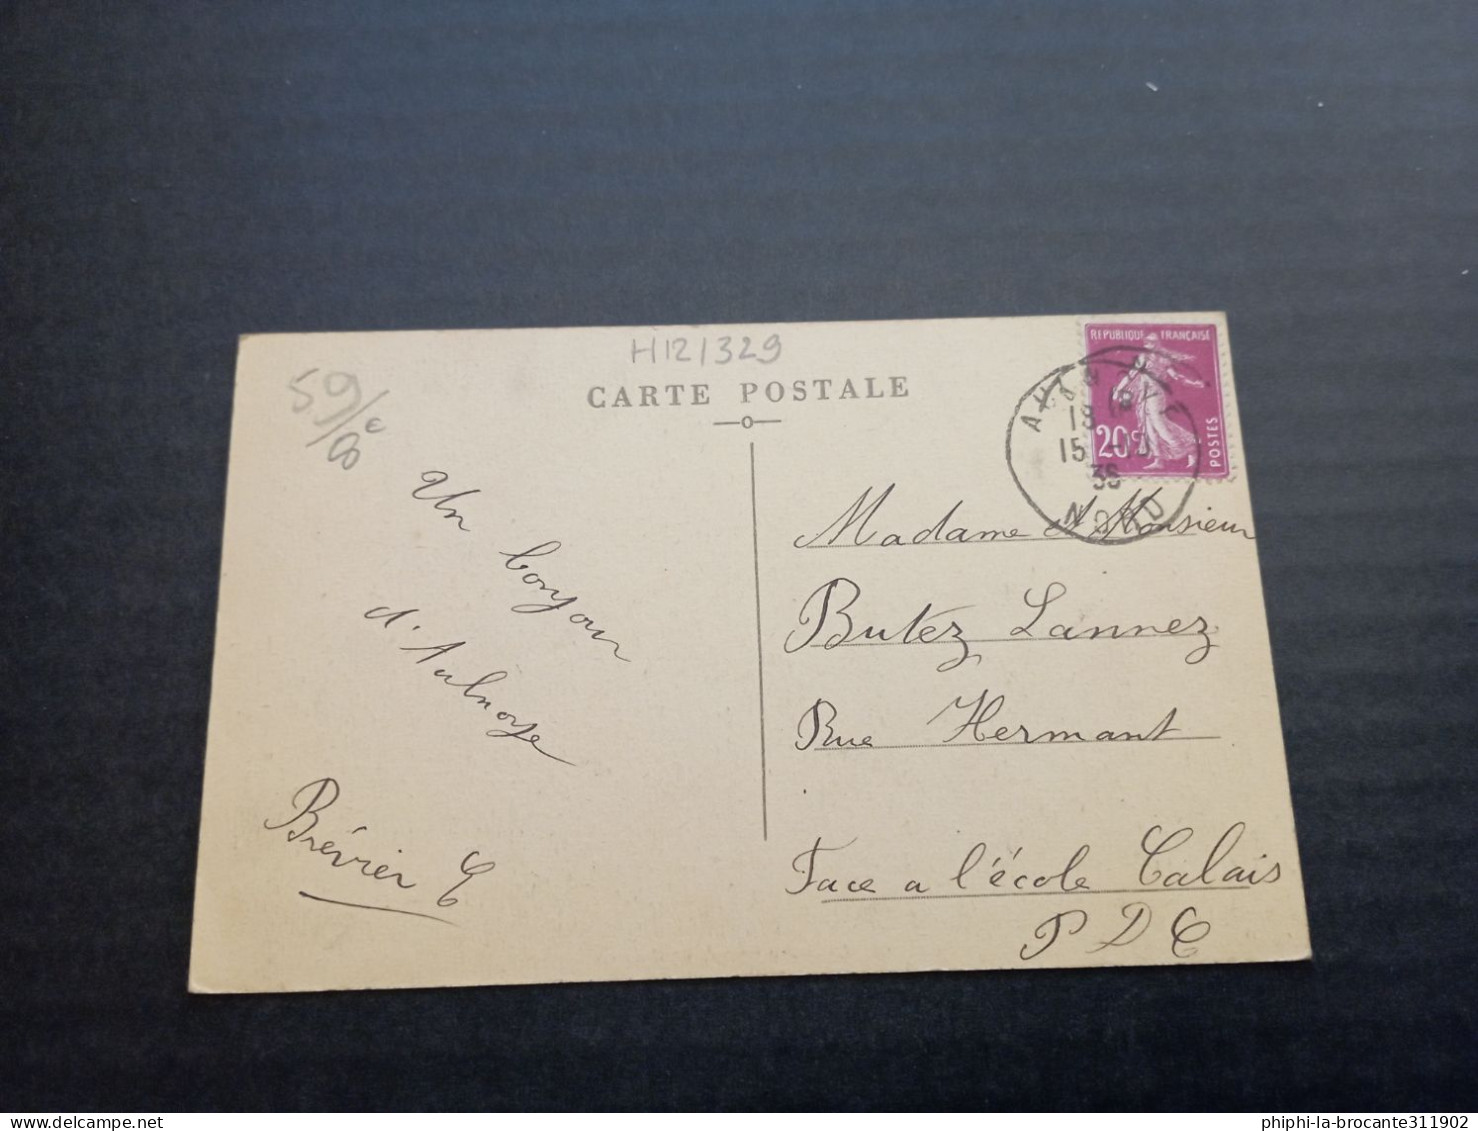 H12/329
59/8€
CARTE POSTALE
REPUBLIQUE FRANÇAISE
20c
POSTES
15 -10
NORD
Un bonjour
d'Aulnoye
Brévier C
Madame et Monsieur
Butez Lannez
Rue Hermant
Face a l'école Calais
P D C
phiphi-la-brocante311902